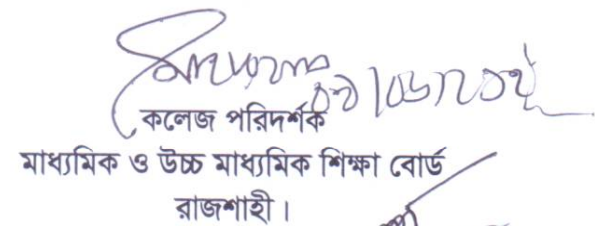 কলেজ পরিদর্শক
মাধ্যমিক ও উচ্চ মাধ্যমিক শিক্ষা বোর্ড
রাজশাহী।